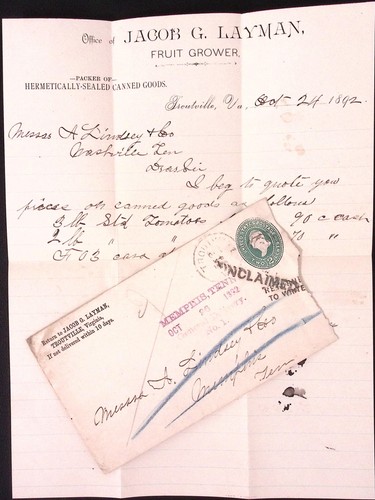 Office of JACOB G. LAYMAN,
FRUIT GROWER,
—PACKER OF—
HERMETICALLY-SEALED CANNED GOODS.
Troutville, Va, Oct 24 1892
Messrs A Lindsey & Co
Nashville Ten
Dear Sir
I beg to quote you
prices on canned goods as follows
3 lb Std Tomatoes 90 c cash
2 lb " " 70 "
F.O.B. cars
Return to JACOB G. LAYMAN,
TROUTVILLE, Virginia,
If not delivered within 10 days.
MEMPHIS, TENN
OCT 1892
UNCLAIMED
TO WRITER
Messrs A. Lindsey & Co
Memphis
Tenn